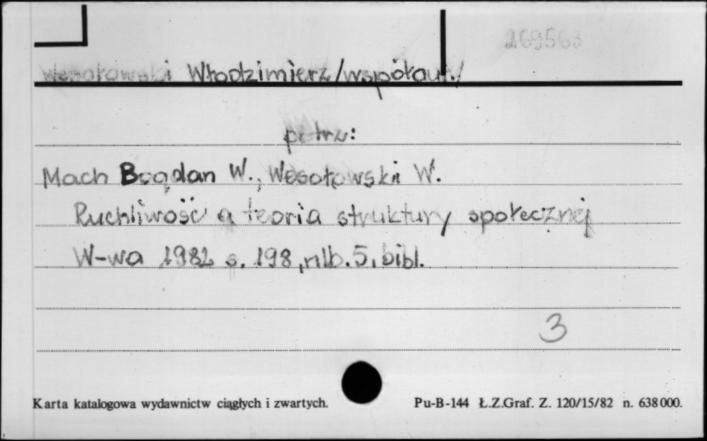 269563
Wesołowski Włodzimierz/współaut./
patrz:
Mach Bogdan W., Wesołowski W.
Ruchliwość a teoria struktury społecznej
W-wa 1982 s. 198, nlb. 5, bibl.
3
Karta katalogowa wydawnictw ciągłych i zwartych. Pu-B-144 Ł.Z.Graf. Z. 120/15/82 n. 638000.